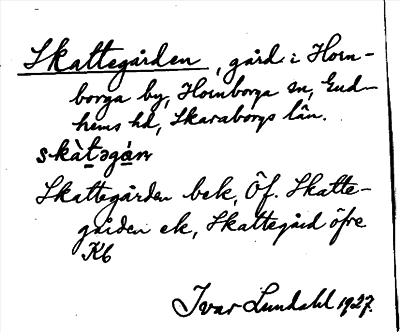 Skattegården, gård i Horn-
borga by, Hornborga sn, Gud-
hems hd, Skaraborgs län.
skàt̠əgá̠n
Skattegården bek, Öf. Skatte-
gården ek, Skattegård öfre
Kb
Ivar Lundahl 1927.